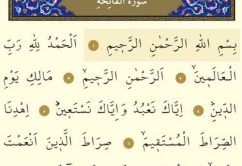 سُورَةُ الْفَاتِحَةِ
بِسْمِ اللّٰهِ الرَّحْمٰنِ الرَّحٖيمِ ﴿١﴾ اَلْحَمْدُ لِلّٰهِ رَبِّ
الْعَالَمٖينَۙ ﴿٢﴾ اَلرَّحْمٰنِ الرَّحٖيمِۙ ﴿٣﴾ مَالِكِ يَوْمِ
الدّٖينِۜ ﴿٤﴾ اِيَّاكَ نَعْبُدُ وَاِيَّاكَ نَسْتَعٖينُۜ ﴿٥﴾ اِهْدِنَا
الصِّرَاطَ الْمُسْتَقٖيمَۙ ﴿٦﴾ صِرَاطَ الَّذٖينَ اَنْعَمْتَ